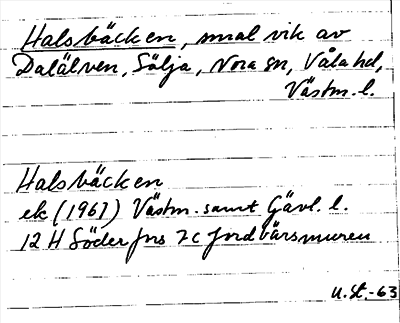 Halsbäcken, smal vik av
Dalälven, Sälja, Nora sn, Våla hd,
Västm. l.
Halsbäcken
ek (1967) Västm. samt Gävl. l.
12 H Söderfors 7c Jordvärsmuren
U.St.-63